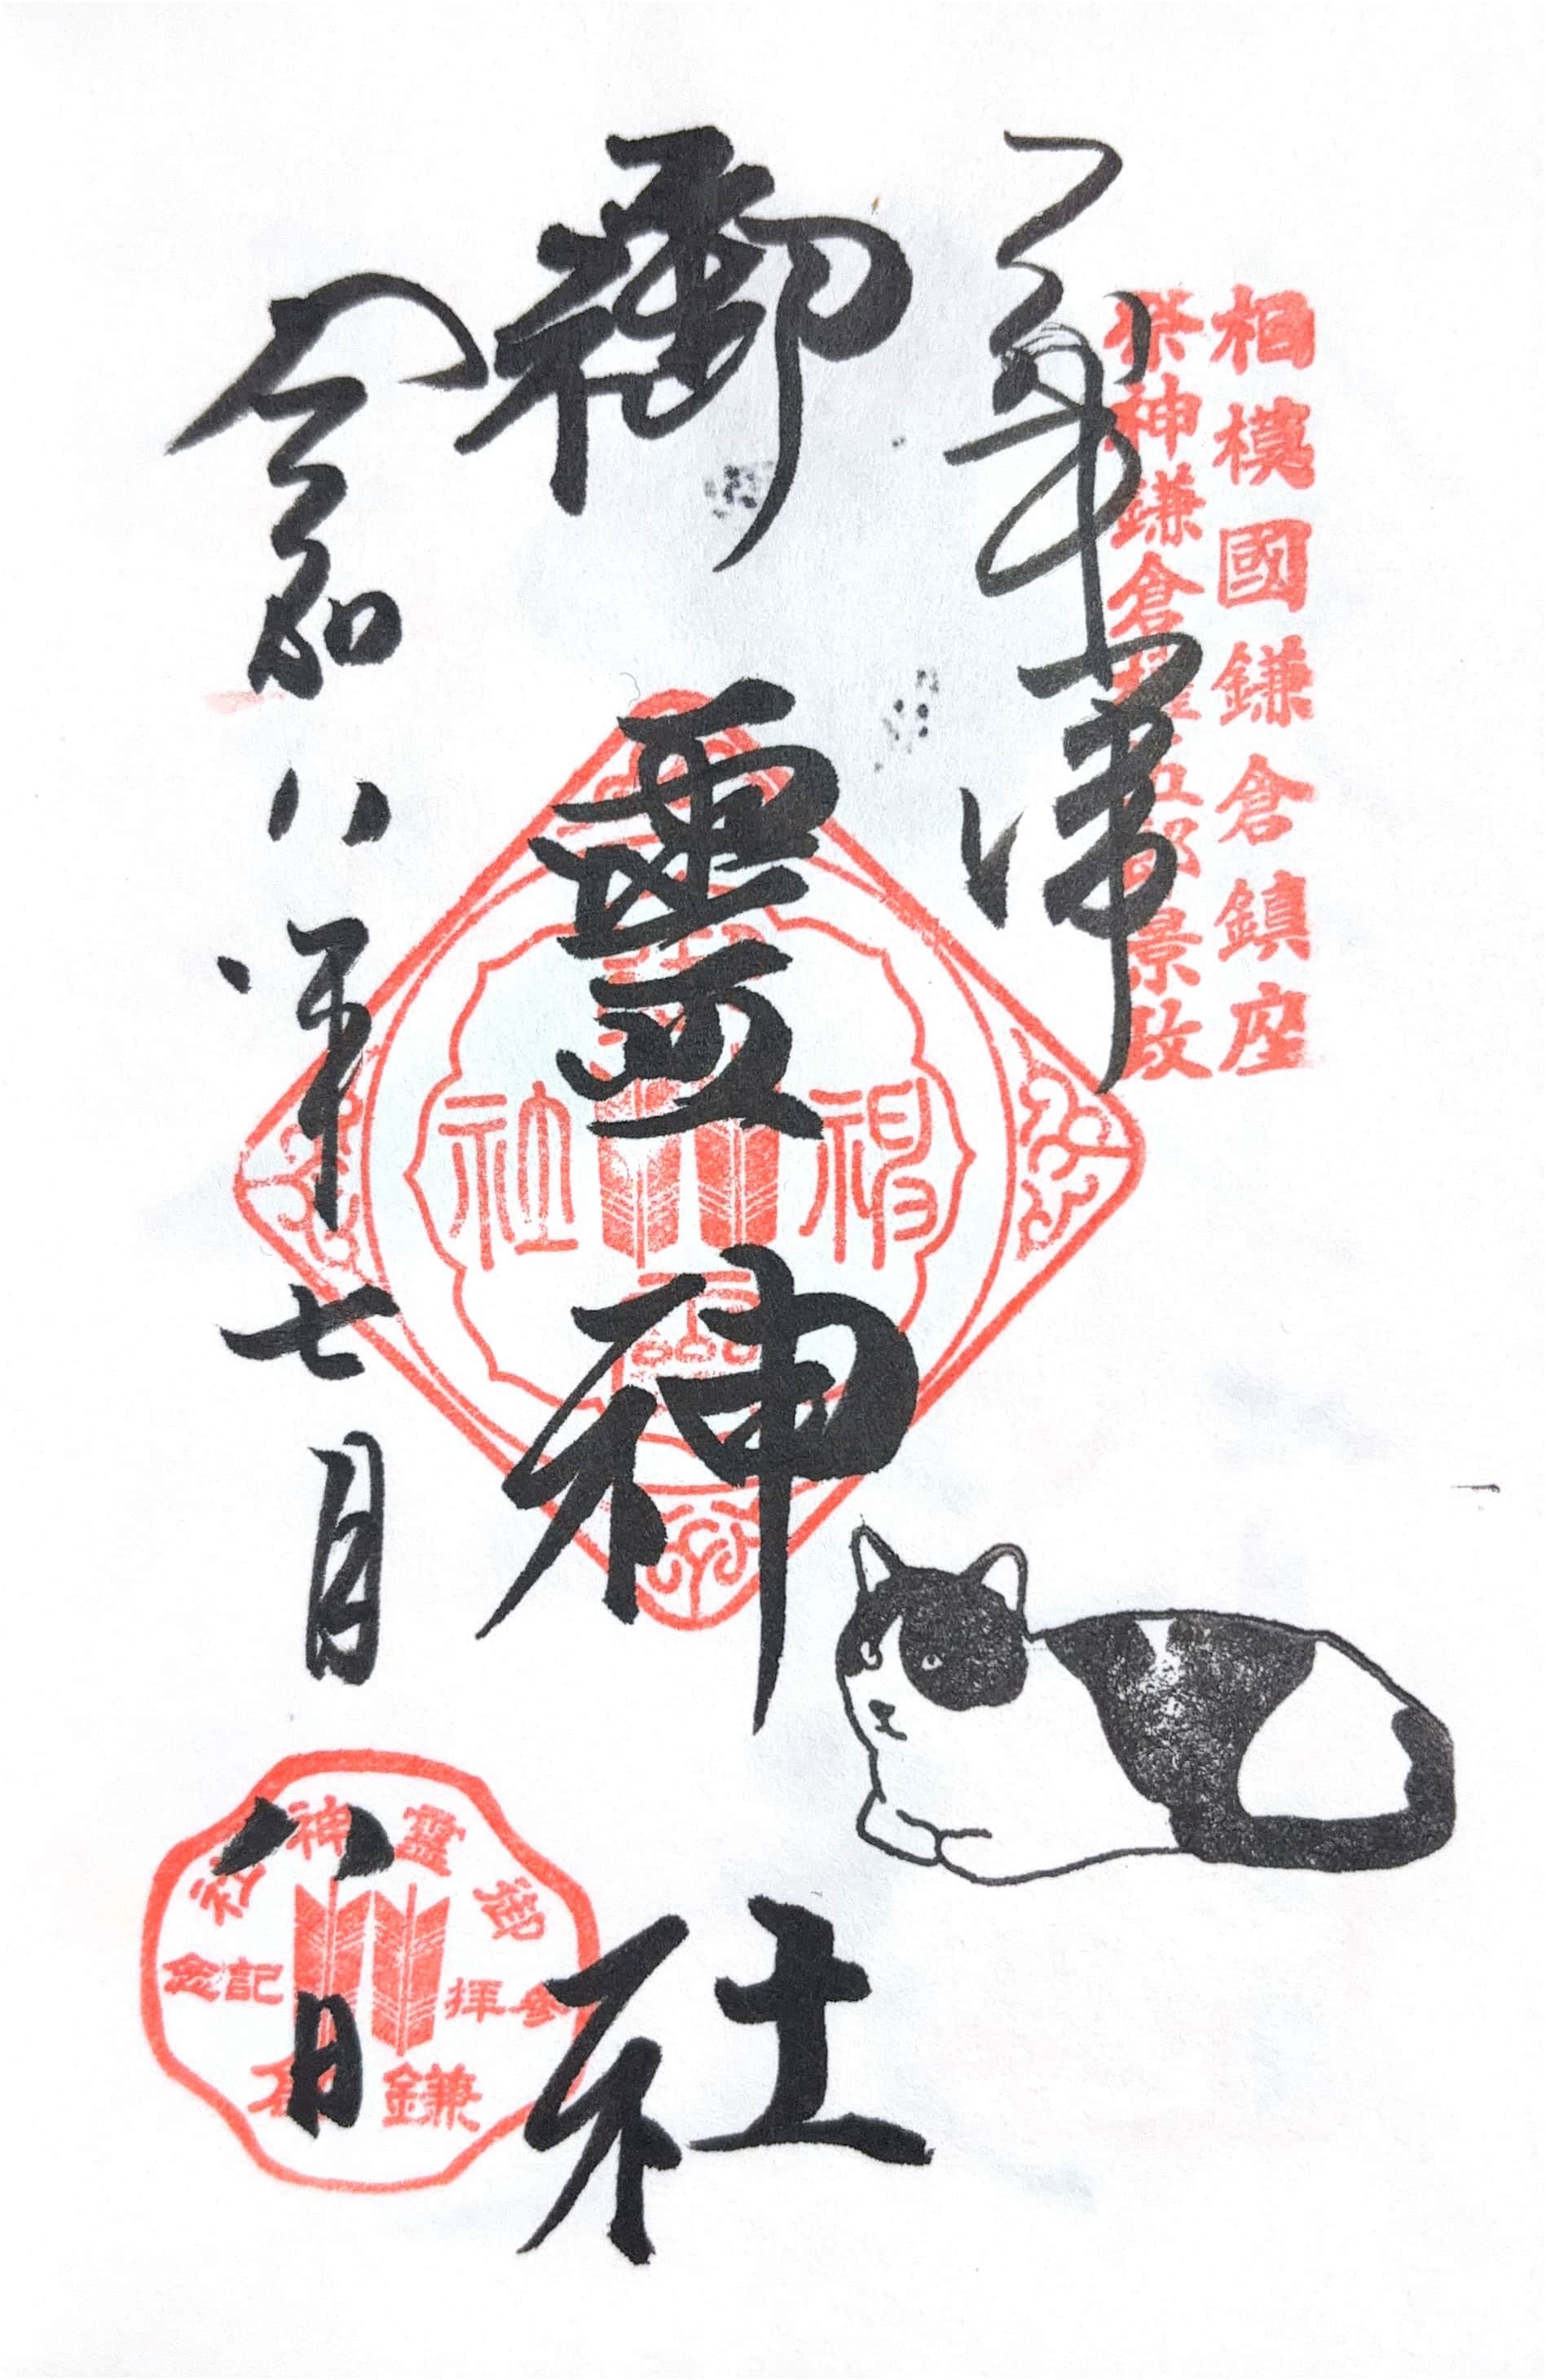 相模國鎌倉鎮座
祭神鎌倉権五郎景政
奉拝
御霊神社
令和八年七月八日
神社
御靈神社
参拝記念
鎌倉